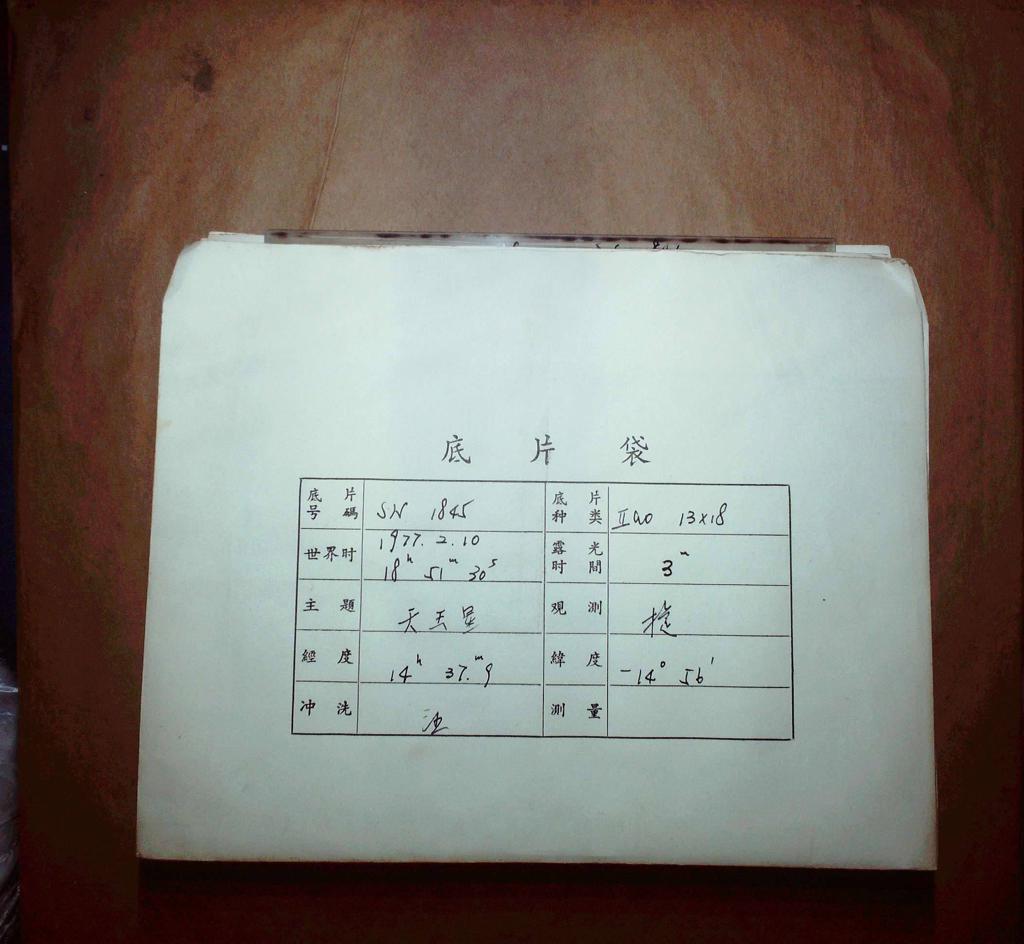 底 片 袋
底 片
号 碼
SN 1845
底 片
种 类
IIao 13×18
世界时
1977. 2. 10
18h 51m 30s
露 光
时 間
3m
主 題
天王星
观 測
經 度
14h 37.m9
緯 度
-14° 56'
冲 洗
測 量